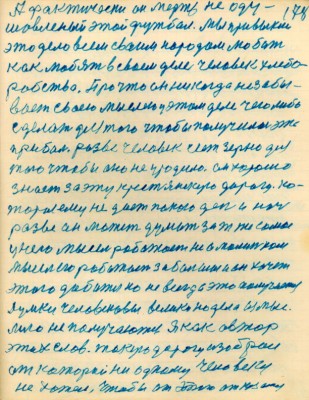 А фактически он мертв, не оду- 178
шовленый этой
мы привыкли
это дело всем своим народом любят
как любят в своем деле человек хлебо
робство. Про что он никогда не забы-
вает своею мыслею у этом деле чего либо
сделат для того чтобы получилася
прибал. разве человек сеет зерно для
того чтобы оно не уродило. он хорошо
знает за эту крестьянскую дорогу. ко-
тория ему не дает покою ден и ноч
разве он может думат за
у него мысел работает не о маленком
мысел его работает за болшим он хочет
этого добится но не всегда это получается
думки человековы велики но дела
мало не получаются Я как автор
этих слов. такую дорогу избрал
от которой ни одному человеку
не хотел, чтобы от этого